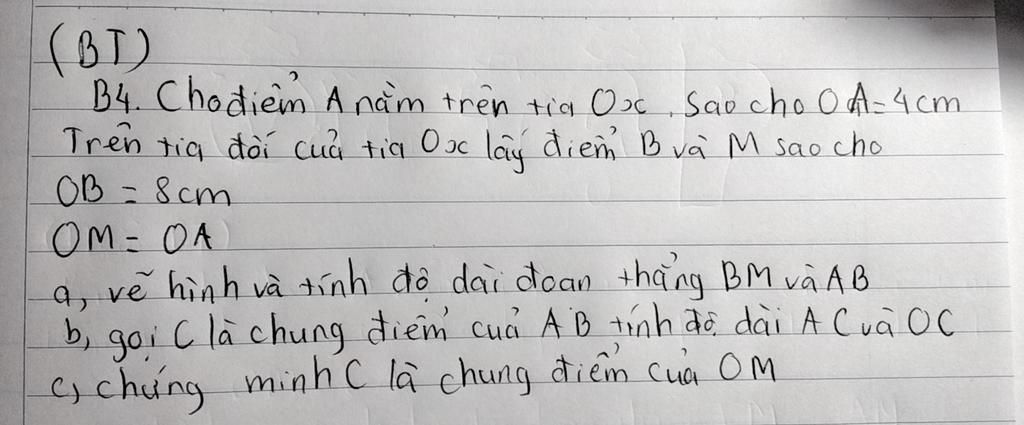 (BT)
B4. Cho điểm A nằm trên tia Ox, sao cho OA=4cm
Trên tia đối của tia Ox lấy điểm B và M sao cho
OB = 8cm
OM = OA
a, vẽ hình và tính độ dài đoan thẳng BM và AB
b, gọi C là chung điểm của AB tính độ dài AC và OC
c, chứng minh C là chung điểm của OM